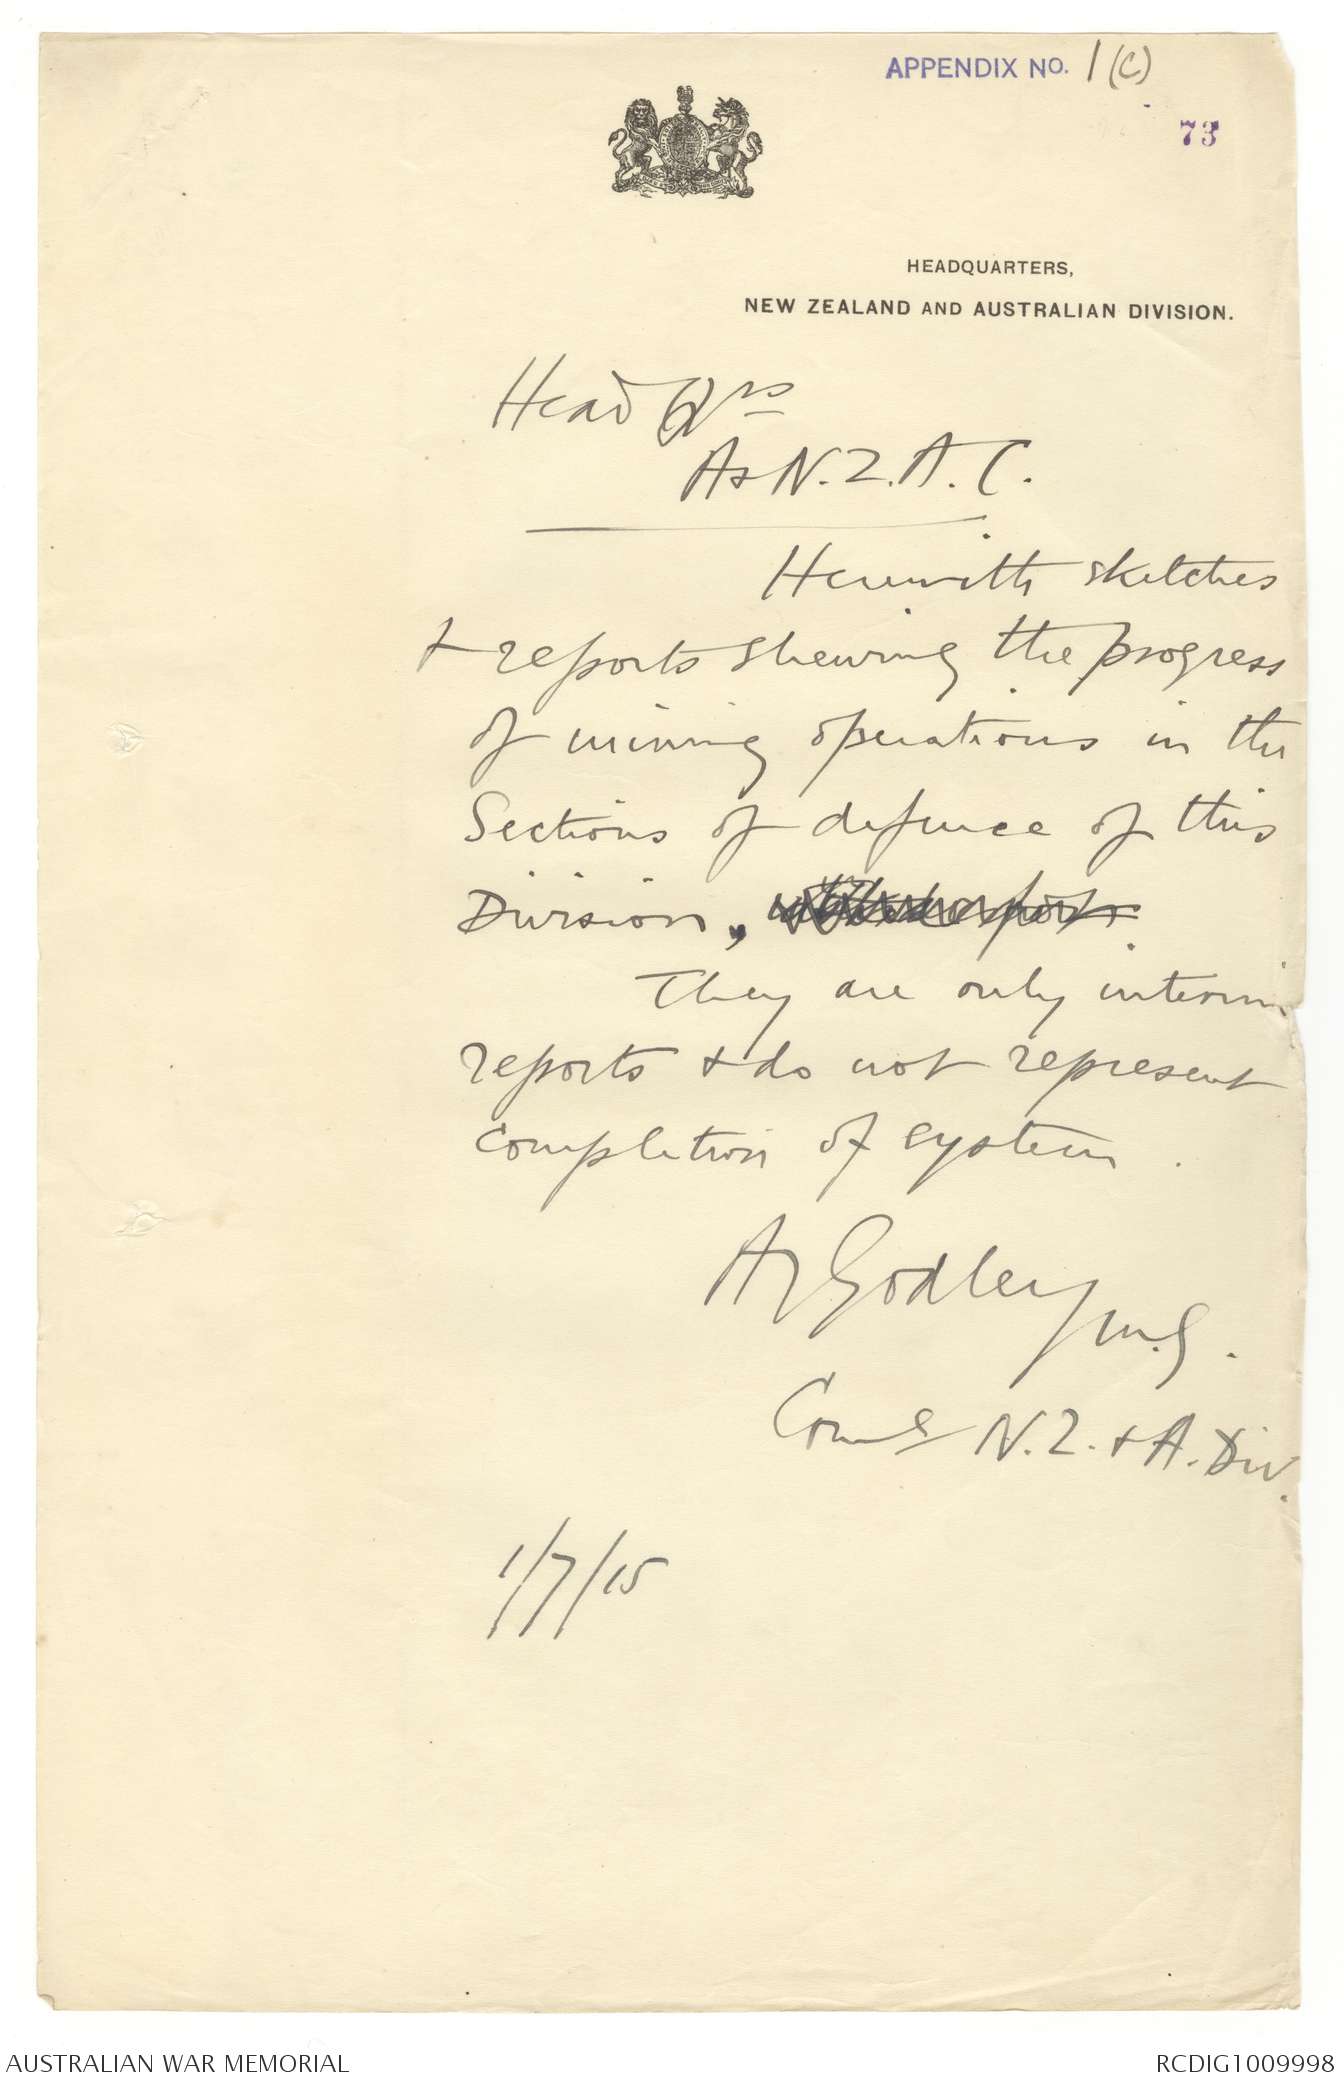 APPENDIX No. 1 (C)
73
HEADQUARTERS,
NEW ZEALAND AND AUSTRALIAN DIVISION.
Head Qrs
A & N.Z.A.C.
Herewith sketches
& reports shewing the progress
of mining operations in the
Sections of defence of this
Division,
They are only interim
reports & do not represent
completion of system.
Godley M.G.
Comdg N.Z. & A. Div.
1/7/15
AUSTRALIAN WAR MEMORIAL
RCDIG1009998